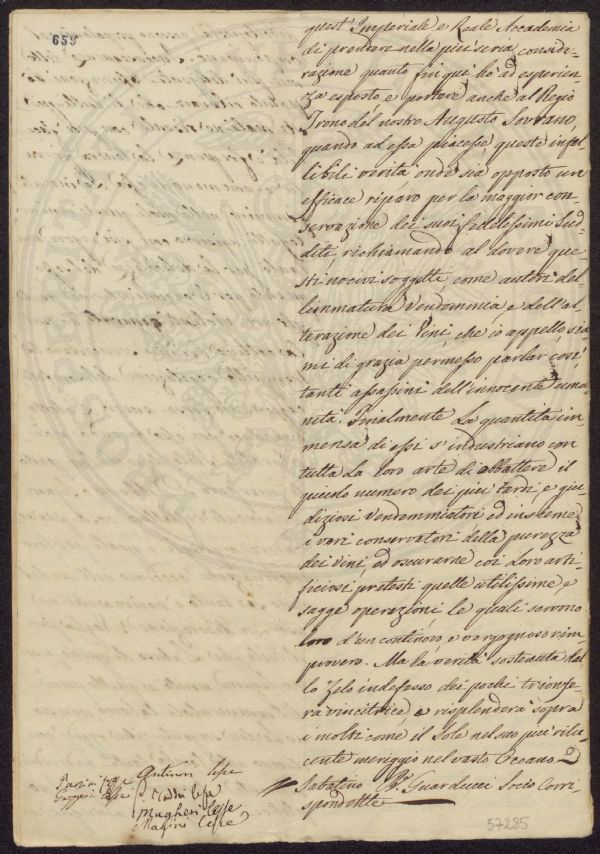 659
quest' Imperiale e Reale Accademia
di prendere nella piu' seria conside-
razione quanto fin qui ho' ad esperien-
za esposto e portare anche al Regio
Trono del nostro Augusto Sovrano,
quando ad essa piacesse queste infal-
libili verita' onde sia opposto un
efficace riparo per la maggior con-
servazione dei suoi fedelissimi Sud-
diti, richiamando al dovere que-
sti nocivi soggetti, come autori del-
l'inmatura Vendemmia e dell'al-
terazione dei Vini, che io appello, sia-
mi di grazia permesso parlar cosi'
tanti assassini dell'innocente uma-
nita'. Finalmente La quantita im-
mensa di essi s'industriano con
tutta La loro arte di abbattere il
piccolo numero dei piu' tardi, e giu-
diziosi Vendemmiatori ed insieme
i veri conservatori della purezza
dei Vini, ed oscurarne coi Loro arti-
ficiosi pretesti quelle utilissime, e
sagge operazioni, le quali servono
loro d'un continovo, e vergognoso rim-
provero. Ma la verita' sostenuta dal-
lo Zelo indefesso dei pochi trionfe-
ra' vincitrice e risplendera' sopra
i molti come il Sole nel suo piu' rilu-
cente meriggio nel vasto Oceano.
Sabatino B. Guarducci Socio Corri-
spondente
Antinori lesse
lesse
Mugheri lesse
Masini lesse
57285